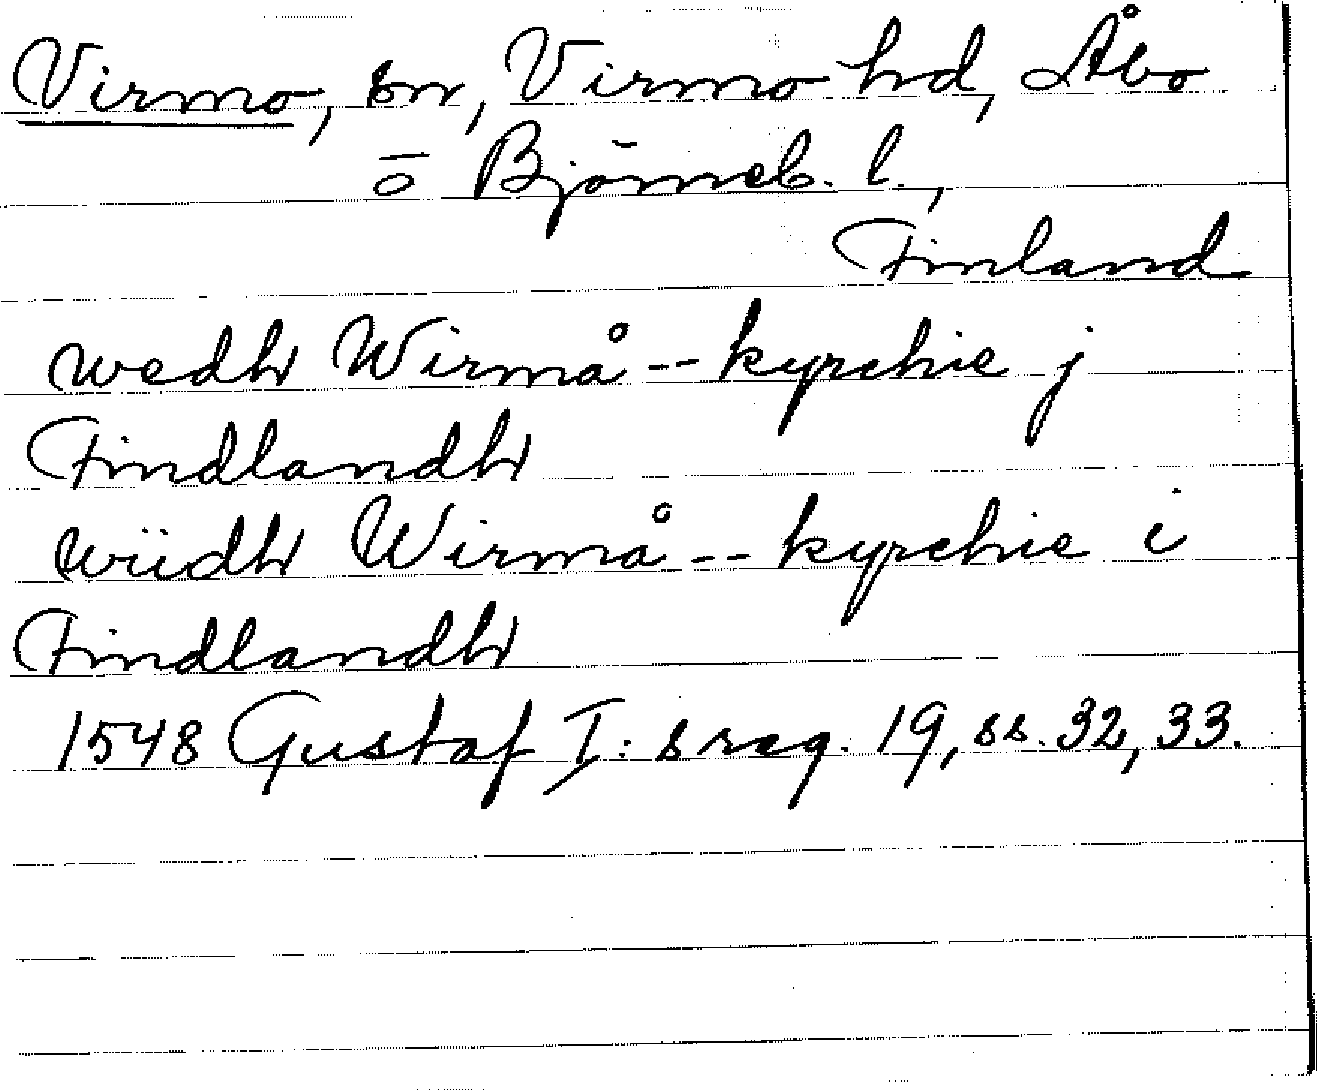 Virmo, sn, Virmo hd, Åbo
o̅ Björneb. l.,
Finland
wedh Wirmå -- kyrchie j
Findlandh
wiidh Wirmå -- kyrchie i
Findlandh
1548 Gustaf I:s reg. 19, ss. 32, 33.